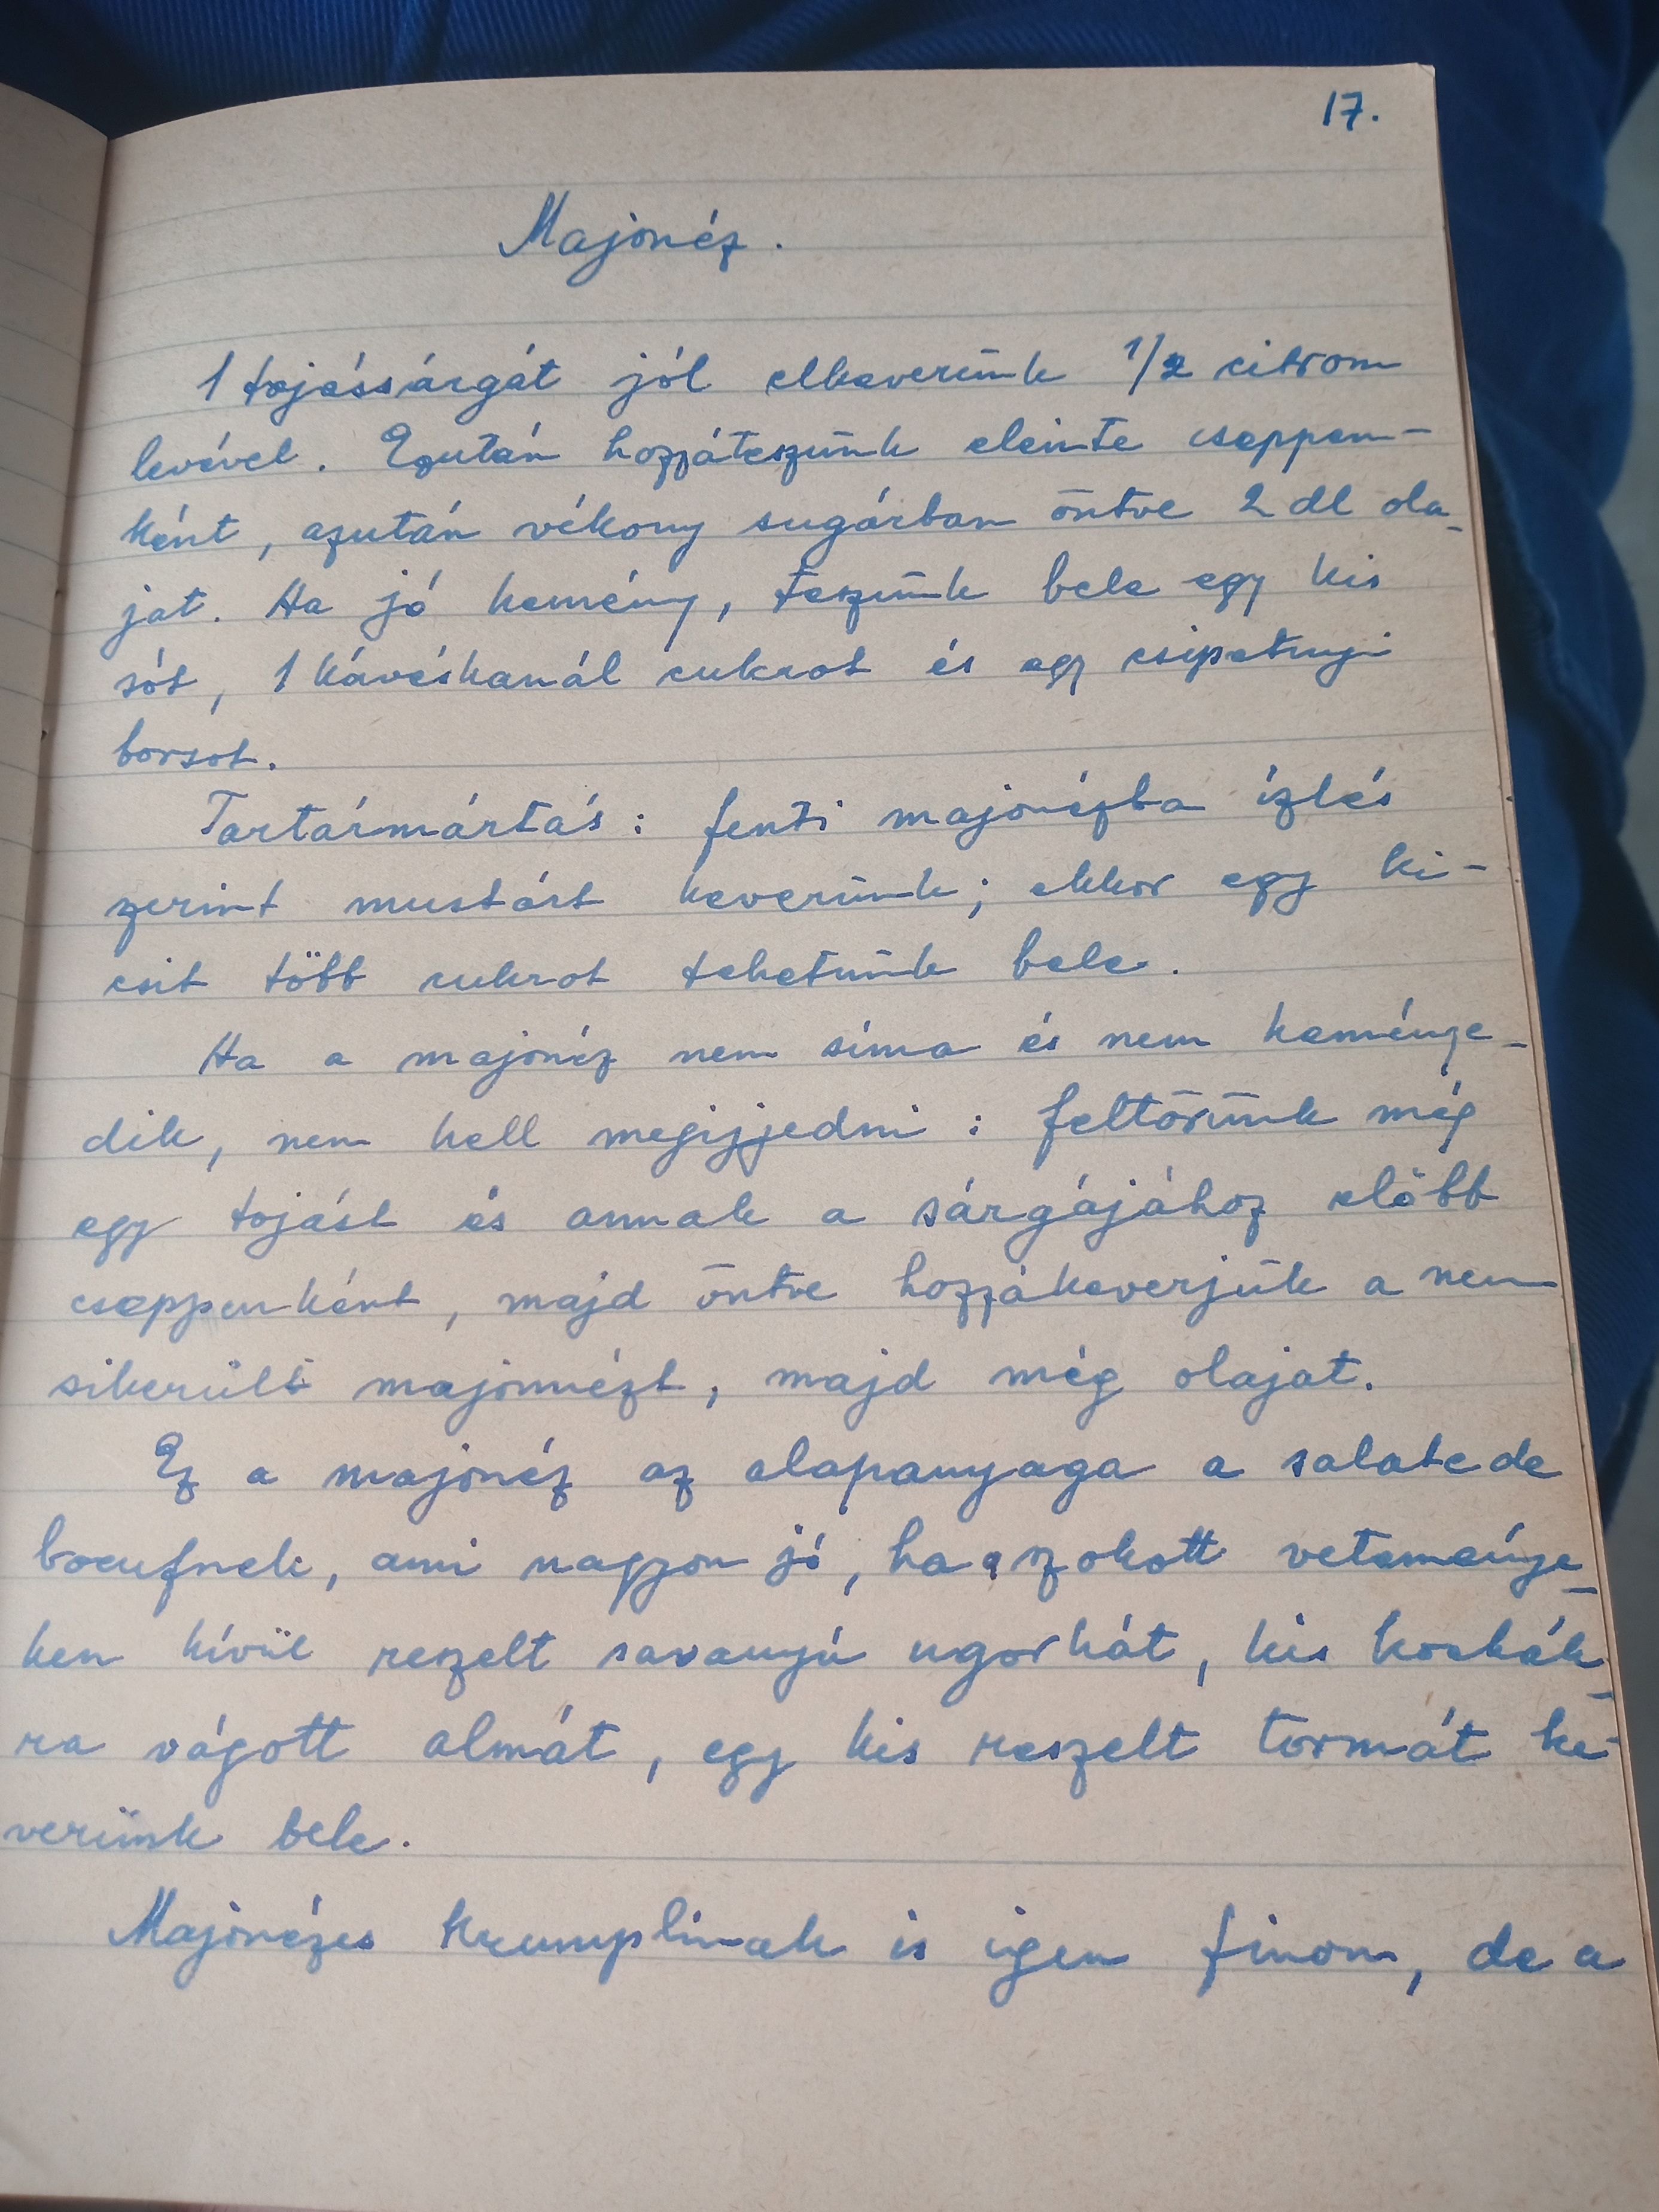 17.
Majonéz.
1 tojássárgát jól elkeverünk 1/2 citrom
levével. Ezután hozzáteszünk eleinte cseppen-
ként, azután vékony sugárban öntve 2 dl ola-
jat. Ha jó kemény, teszünk bele egy kis
sót, 1 kávéskanál cukrot és egy csipetnyi
borsot.
Tartármártás: fenti majonézba ízlés
szerint mustárt keverünk; ekkor egy ki-
csit több cukrot tehetünk bele.
Ha a majonéz nem síma és nem keménye-
dik, nem kell megijjedni: feltörünk még
egy tojást és annak a sárgájához előbb
cseppenként, majd öntve hozzákeverjük a nem
sikerült majonnézt, majd még olajat.
Ez a majonéz az alapanyaga a salate de
boeufnek, ami nagyon jó, ha a szokott vetemenye-
ken kívül reszelt savanyú ugorkát, kis kockák-
ra vágott almát, egy kis reszelt tormát ke-
verünk bele.
Majonézes krumplinak is igen finom, de a